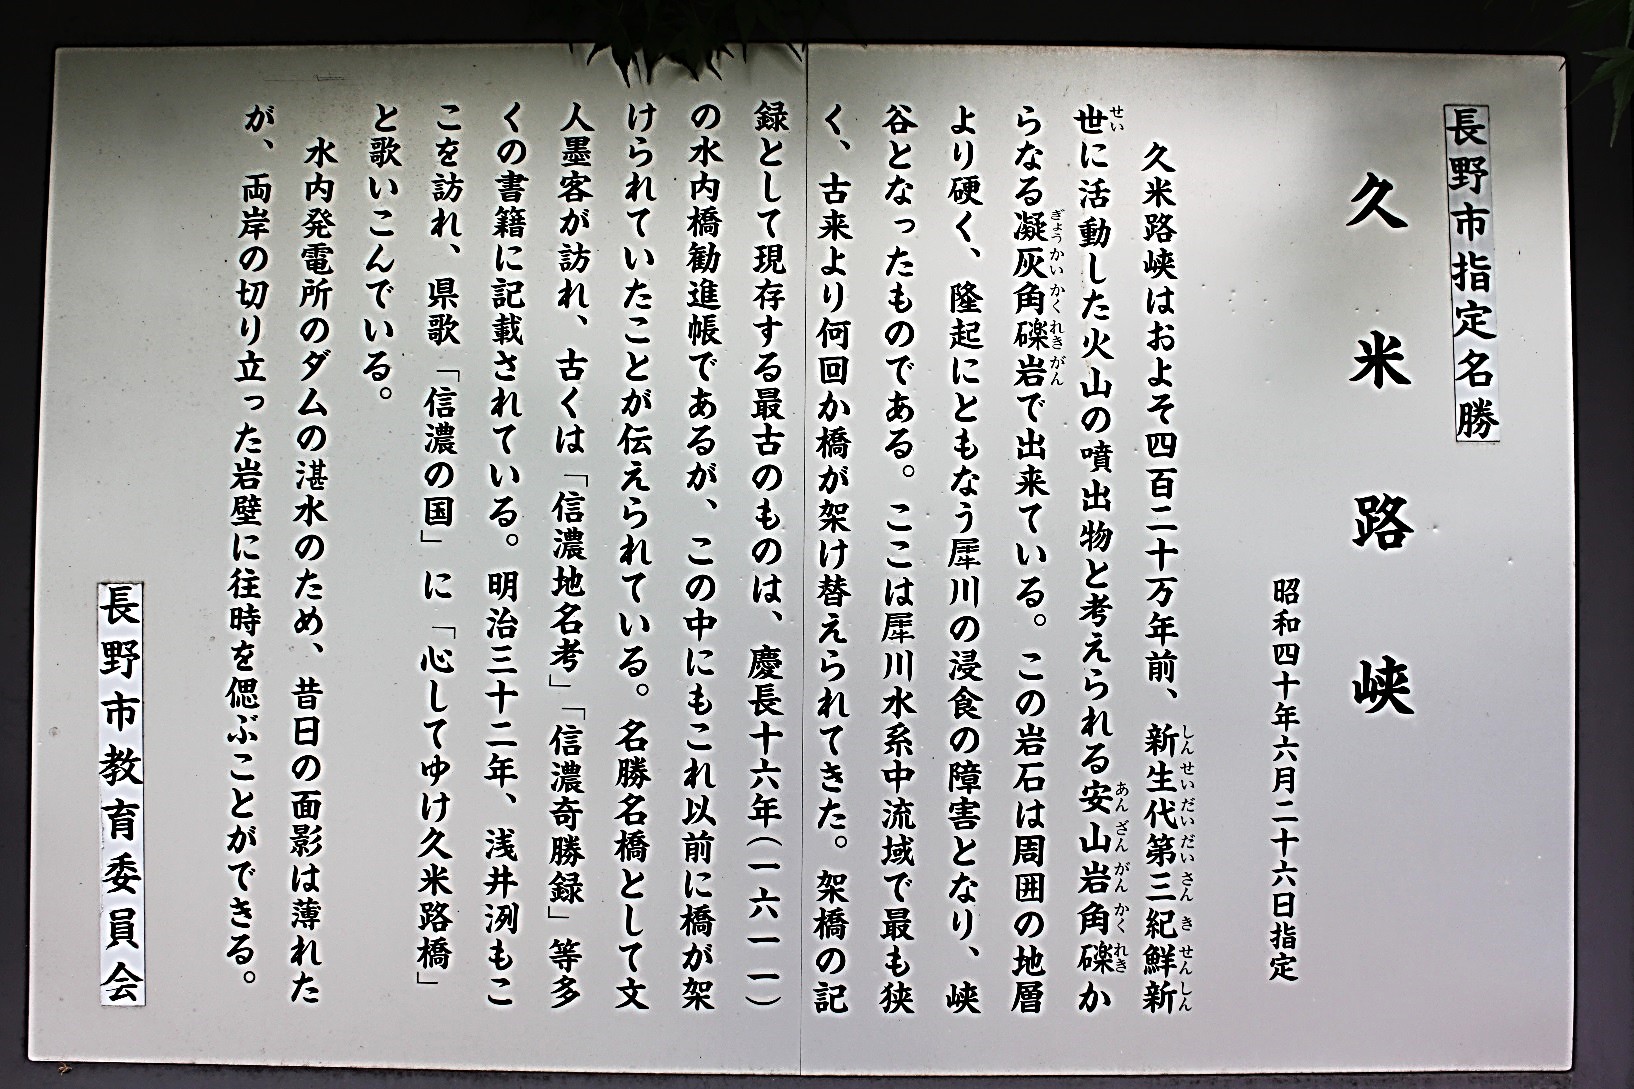 長野市指定名勝
久米路峡
昭和四十年六月二十六日指定
久米路峡はおよそ四百二十万年前、新生代第三紀鮮新
世に活動した火山の噴出物と考えられる安山岩角礫か
らなる凝灰角礫岩で出来ている。この岩石は周囲の地層
より硬く、隆起にともなう犀川の浸食の障害となり、峡
谷となったものである。ここは犀川水系中流域で最も狭
く、古来より何回か橋が架け替えられてきた。架橋の記
録として現存する最古のものは、慶長十六年(一六一一)
の水内橋勧進帳であるが、この中にもこれ以前に橋が架
けられていたことが伝えられている。名勝名橋として文
人墨客が訪れ、古くは「信濃地名考」「信濃奇勝録」等多
くの書籍に記載されている。明治三十二年、浅井洌もこ
こを訪れ、県歌「信濃の国」に「心してゆけ久米路橋」
と歌いこんでいる。
水内発電所のダムの湛水のため、昔日の面影は薄れた
が、両岸の切り立った岩壁に往時を偲ぶことができる。
長野市教育委員会
せい
しんせいだいだいさんきせんしん
あんざんがんかくれき
ぎょうかいかくれきがん